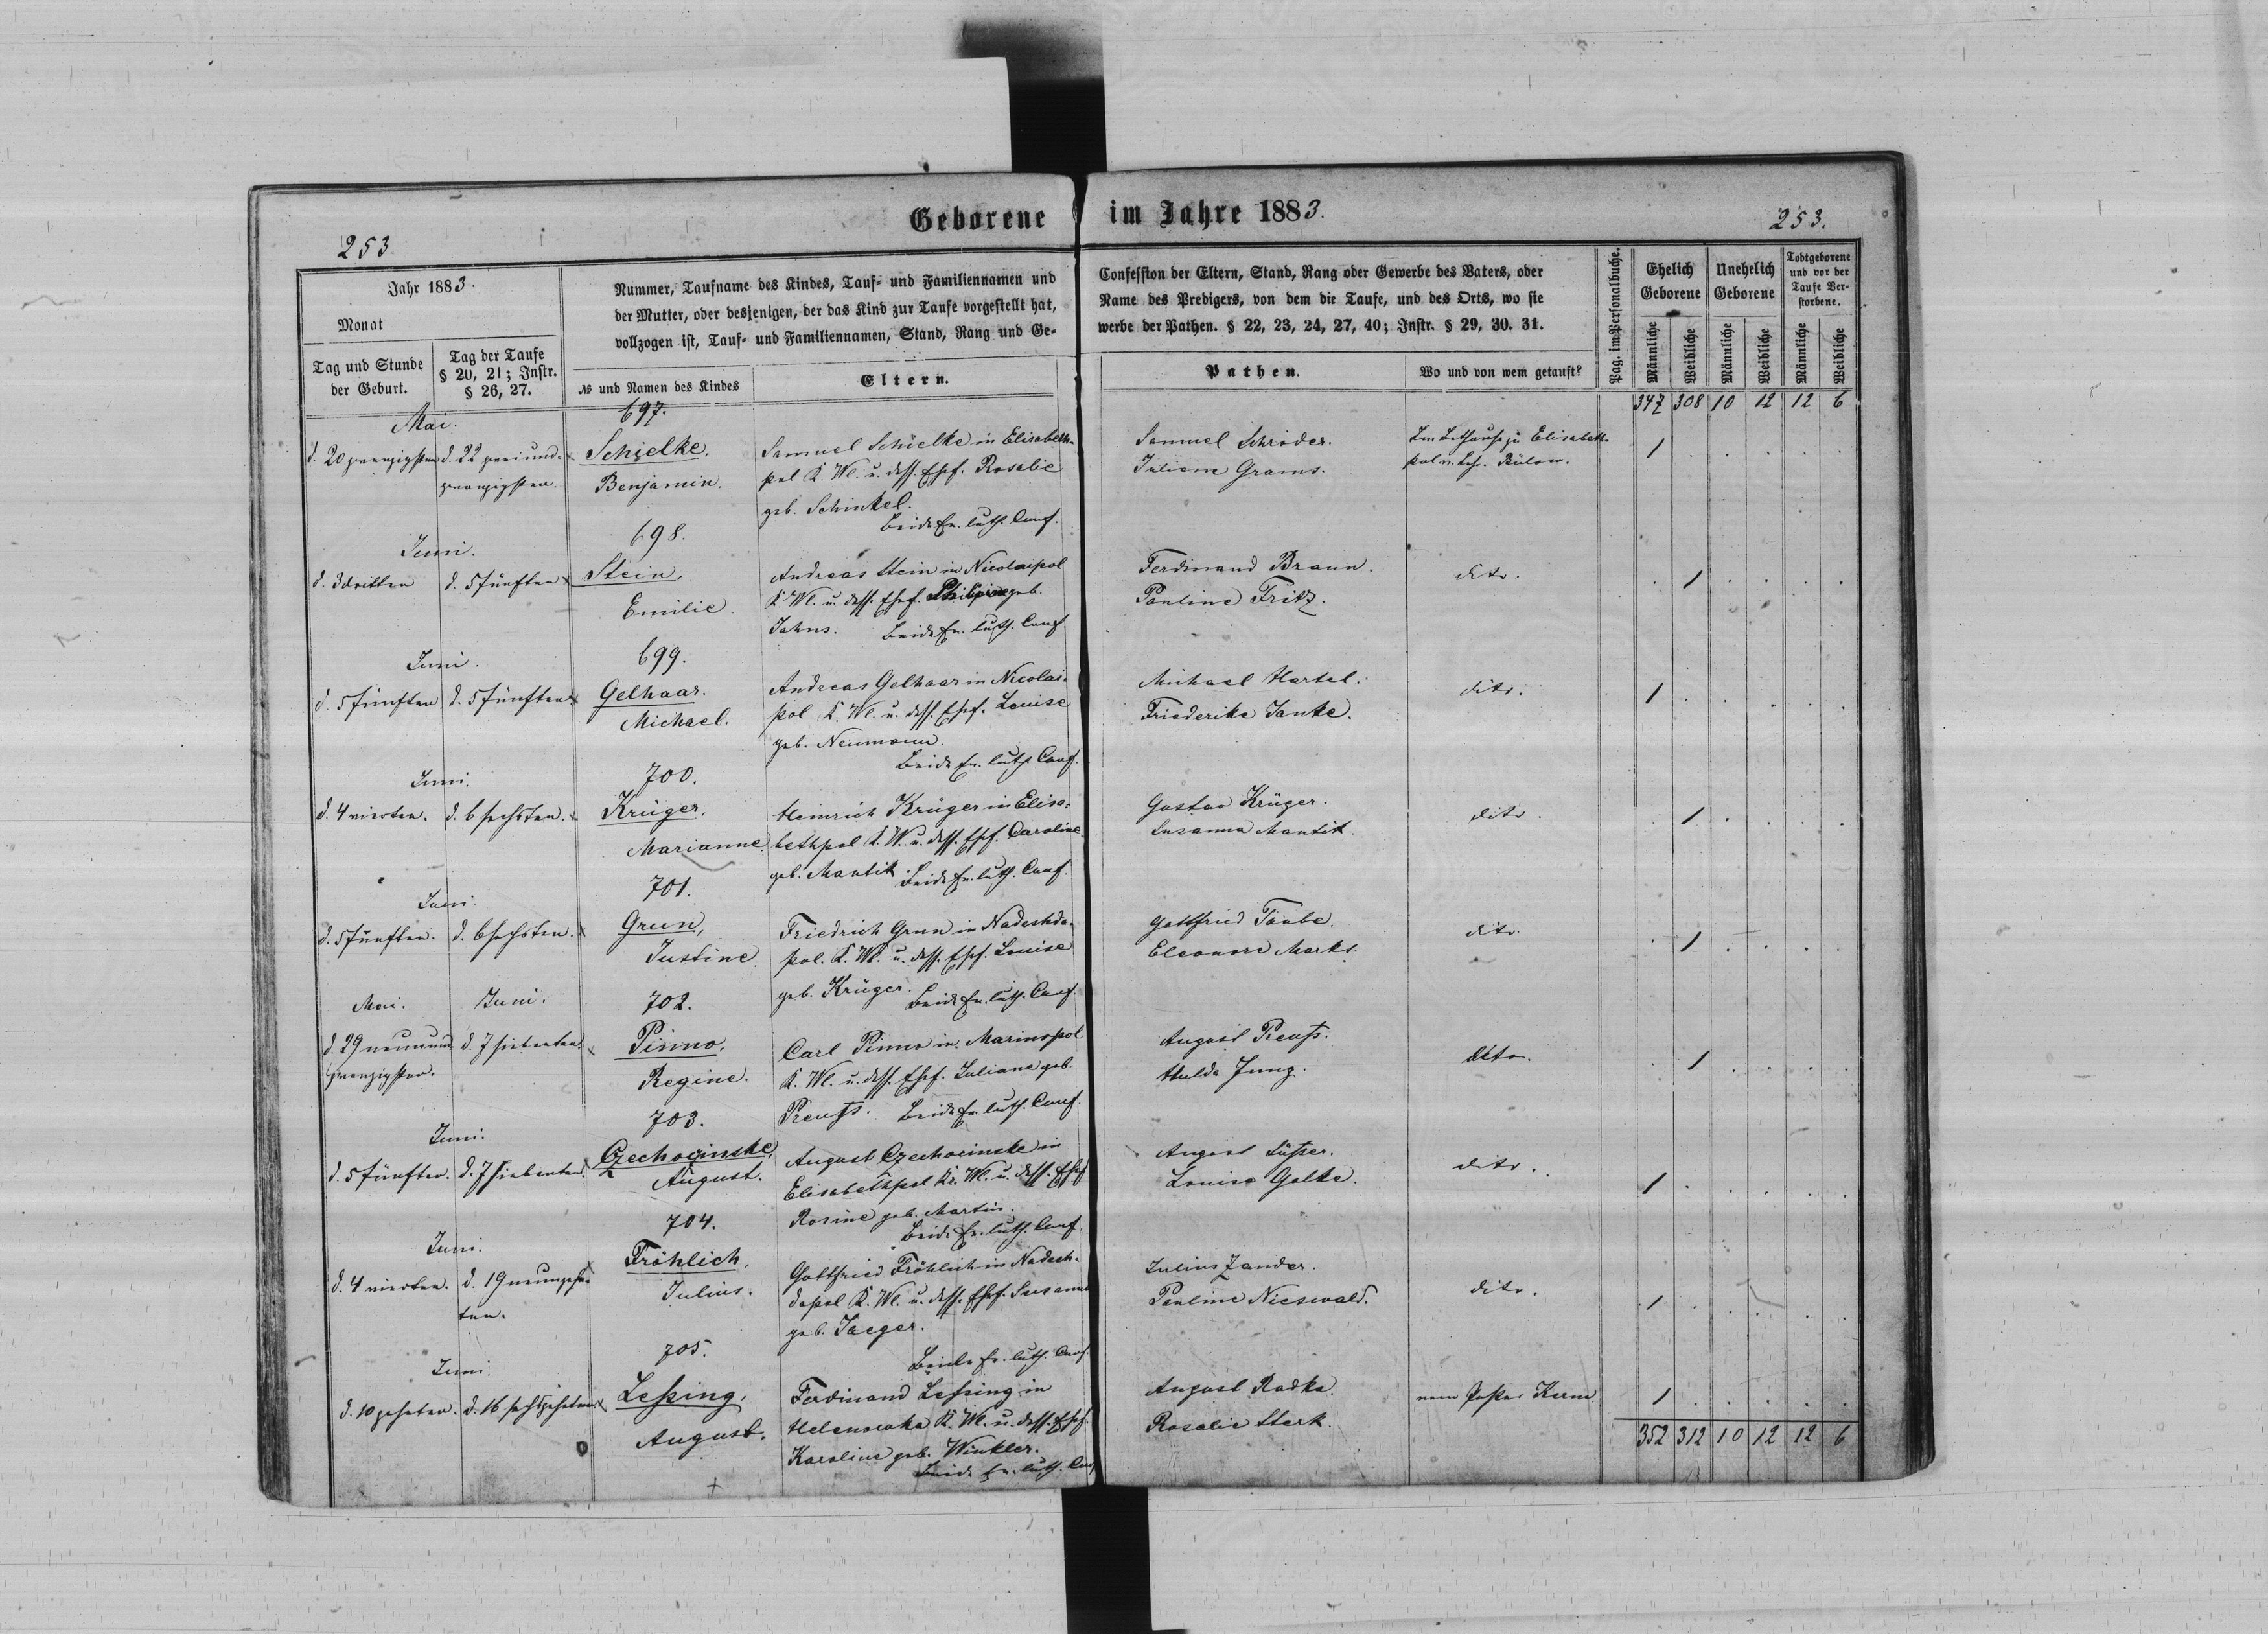 Geborene im Jahre 1883.
253
253.
Jahr 1883.
Monat
Tag und Stunde
der Geburt.
Tag der Taufe
§ 20, 21; Instr.
§ 26, 27.
Nummer, Taufname des Kindes, Tauf- und Familiennamen und
der Mutter, oder desjenigen, der das Kind zur Taufe vorgestellt hat,
vollzogen ist, Tauf- und Familiennamen, Stand, Rang und Ge-
№ und Namen des Kindes
Eltern.
Confession der Eltern, Stand, Rang oder Gewerbe des Vaters, oder
Name des Predigers, von dem die Taufe, und des Orts, wo sie
werbe der Pathen. § 22, 23, 24, 27, 40; Instr. § 29, 30. 31.
Pathen.
Wo und von wem getauft?
Pag. im Personalbuche.
Ehelich
Geborene
Unehelich
Geborene
Todtgeborene
und vor der
Taufe Ver-
storbene.
Männliche
Weibliche
Männliche
Weibliche
Männliche
Weibliche
347 308 10 12 12 6
Mai.
697.
d. 20 zwanzigsten
d. 22 zweiund-
zwanzigsten.
Schielke,
Benjamin.
Samuel Schielke in Elisabeth-
pol K. Wl. u. dess. Ehef. Rosalie
geb. Schinkel.
Beide Ev. luth. Conf.
Samuel Schröder.
Juliane Grams.
Im Bethause zu Elisabeth-
pol v. Leh. Bülow.
1
Juni.
698.
d. 3 dritten
d. 5 fünften
Stein,
Emilie.
Andreas Stein in Nicolaipol
K. Wl. u. dess. Ehef. Philipine geb.
Jahns. Beide Ev. luth. Conf.
Ferdinand Braun.
Pauline Fritz.
dito.
1
Juni.
699.
d. 5 fünften
d. 5 fünften
Gelhaar.
Michael.
Andreas Gelhaar in Nicolai-
pol K. Wl. u. dess. Ehef. Louise
geb. Neumann.
Beide Ev. luth. Conf.
Michael Hartel.
Friederike Janke.
dito.
1
Juni.
700.
d. 4 vierten.
d. 6 sechsten.
Krüger,
Marianne.
Heinrich Krüger in Elisa-
bethpol K. W. u. dess. Ehef. Caroline
geb. Mantik Beide Ev. luth. Conf.
Gustav Krüger.
Susanna Mantik.
dito.
1
Juni.
701.
d. 5 fünften.
d. 6 sechsten.
Grun,
Justine.
Friedrich Grun in Nadeshda-
pol. K. Wl. u. dess. Ehef. Louise
geb. Krüger. Beide Ev. luth. Conf.
Gottfried Taube.
Eleonore Marks.
dito.
1
Mai.
Juni.
702.
d. 29 neunund-
zwanzigsten.
d. 7 siebenten.
Pinno,
Regine.
Carl Pinno in Marinopol
K. Wl. u. dess. Ehef. Juliane geb.
Preuss. Beide Ev. luth. Conf.
August Preuss.
Hulda Jung.
dito.
1
Juni.
703.
d. 5 fünften.
d. 7 siebenten.
Czechocinske,
August.
August Czechocinske in
Elisabethpol K. Wl. u. dess. Ehef
Rosine geb. Martin.
Beide Ev. luth. Conf.
Louise Galke.
dito.
1
Juni.
704.
d. 4 vierten.
d. 19 neunzehn-
ten.
Fröhlich,
Julius.
Gottfried Fröhlich in Nadesh-
dapol K. Wl. u. dess. Ehef. Susanna
geb. Jaeger.
Beide Ev. luth. Conf.
Julius Zander.
Pauline Nieswald.
dito.
1
Juni.
705.
d. 10 zehnten.
d. 16 sechszehnten
Lessing,
August.
Ferdinand Lessing in
Helenowka K. Wl. u. dess. Ehef.
Karoline geb. Winkler.
Beide Ev. luth. Conf
August Radke.
Rosalie Sterk.
vom Pastor Kerm.
1
352 312 10 12 12 6